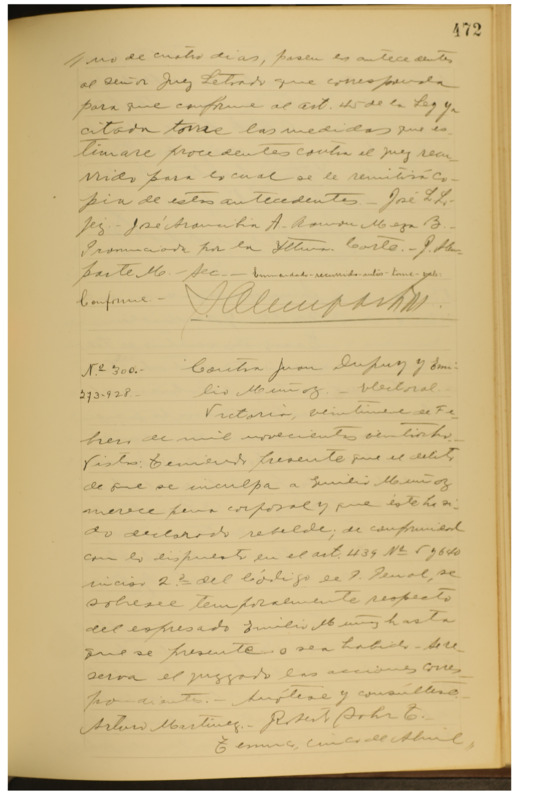 472
no de cuatro dias, pasen es antecedentes
al señor Juez Letrado que corresponda
para que conforme al art. de la Ley ya
citada tome las medidas que es-
timare procedentes contra el juez recu-
rrido para lo cual se le remitirá co-
pia de estos antecedentes. - José L. Ló-
pez - José Aramubia A. Ramon Meza B. -
Pronunciada por la Iltma. Corte. - J. 
parte M. - Sec. -
Conforme -
Nº 300.- Contra Juan Dupuy y Emi-
273-928. lio Muñoz. - Electoral -
Victoria, veintinueve de Fe-
brero de mil novecientos veintiocho. -
Vistos: Teniendo presente que el delito
de que se inculpa a Emilio Muñoz
merece pena corporal y que éste ha si-
do declarado rebelde, de conformidad
con lo dispuesto en el art. 439 Nº 5 y 640
inciso 2º del Código de P. Penal, se
sobresee temporalmente respecto
del espresado Emilio Muñoz hasta
que se presente o sea habido. - Se re-
serva el juzgado las acciones corres-
pondientes. - Anótese y consúltese. -
Arturo Martinez. - Roberto Bohr E. -
Temuco, cinco de Abril